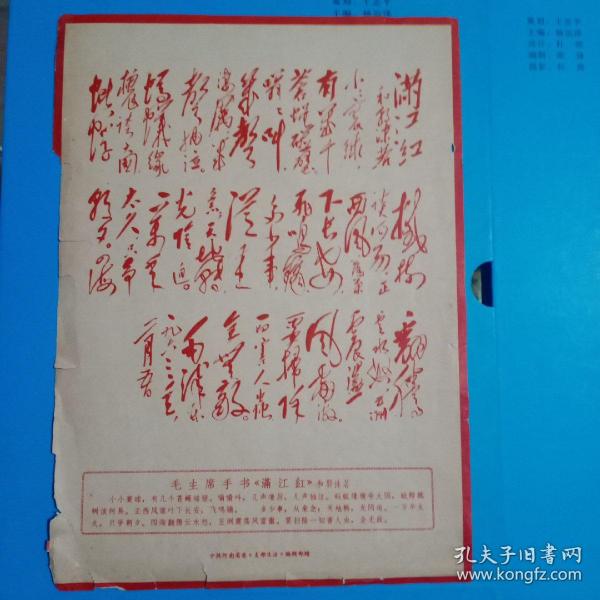 满江红
和郭沫若
小小寰球
有几个
苍蝇碰壁
嗡嗡叫
几声
凄厉几
声抽泣
蚂蚁缘
槐夸大国
蚍蜉撼
树
谈何易正
西风落叶
下长安
飞鸣镝
多少事
从来
急天地转
光阴迫
一万年
太久只争
朝夕四海
翻腾
云水怒五洲
震荡
风雷激
要扫除
一切害人虫
全无敌
毛泽东
一九六三年
二月五日
毛主席手书《满江红》和郭沫若
小小寰球，有几个苍蝇碰壁。嗡嗡叫，几声凄厉，几声抽泣。蚂蚁缘槐夸大国，蚍蜉撼
树谈何易。正西风落叶下长安，飞鸣镝。 多少事，从来急；天地转，光阴迫。一万年太
久，只争朝夕。四海翻腾云水怒，五洲震荡风雷激。要扫除一切害人虫，全无敌。
中共河南省委《支部生活》编辑部赠
孔夫子旧书网
www.kongfz.com